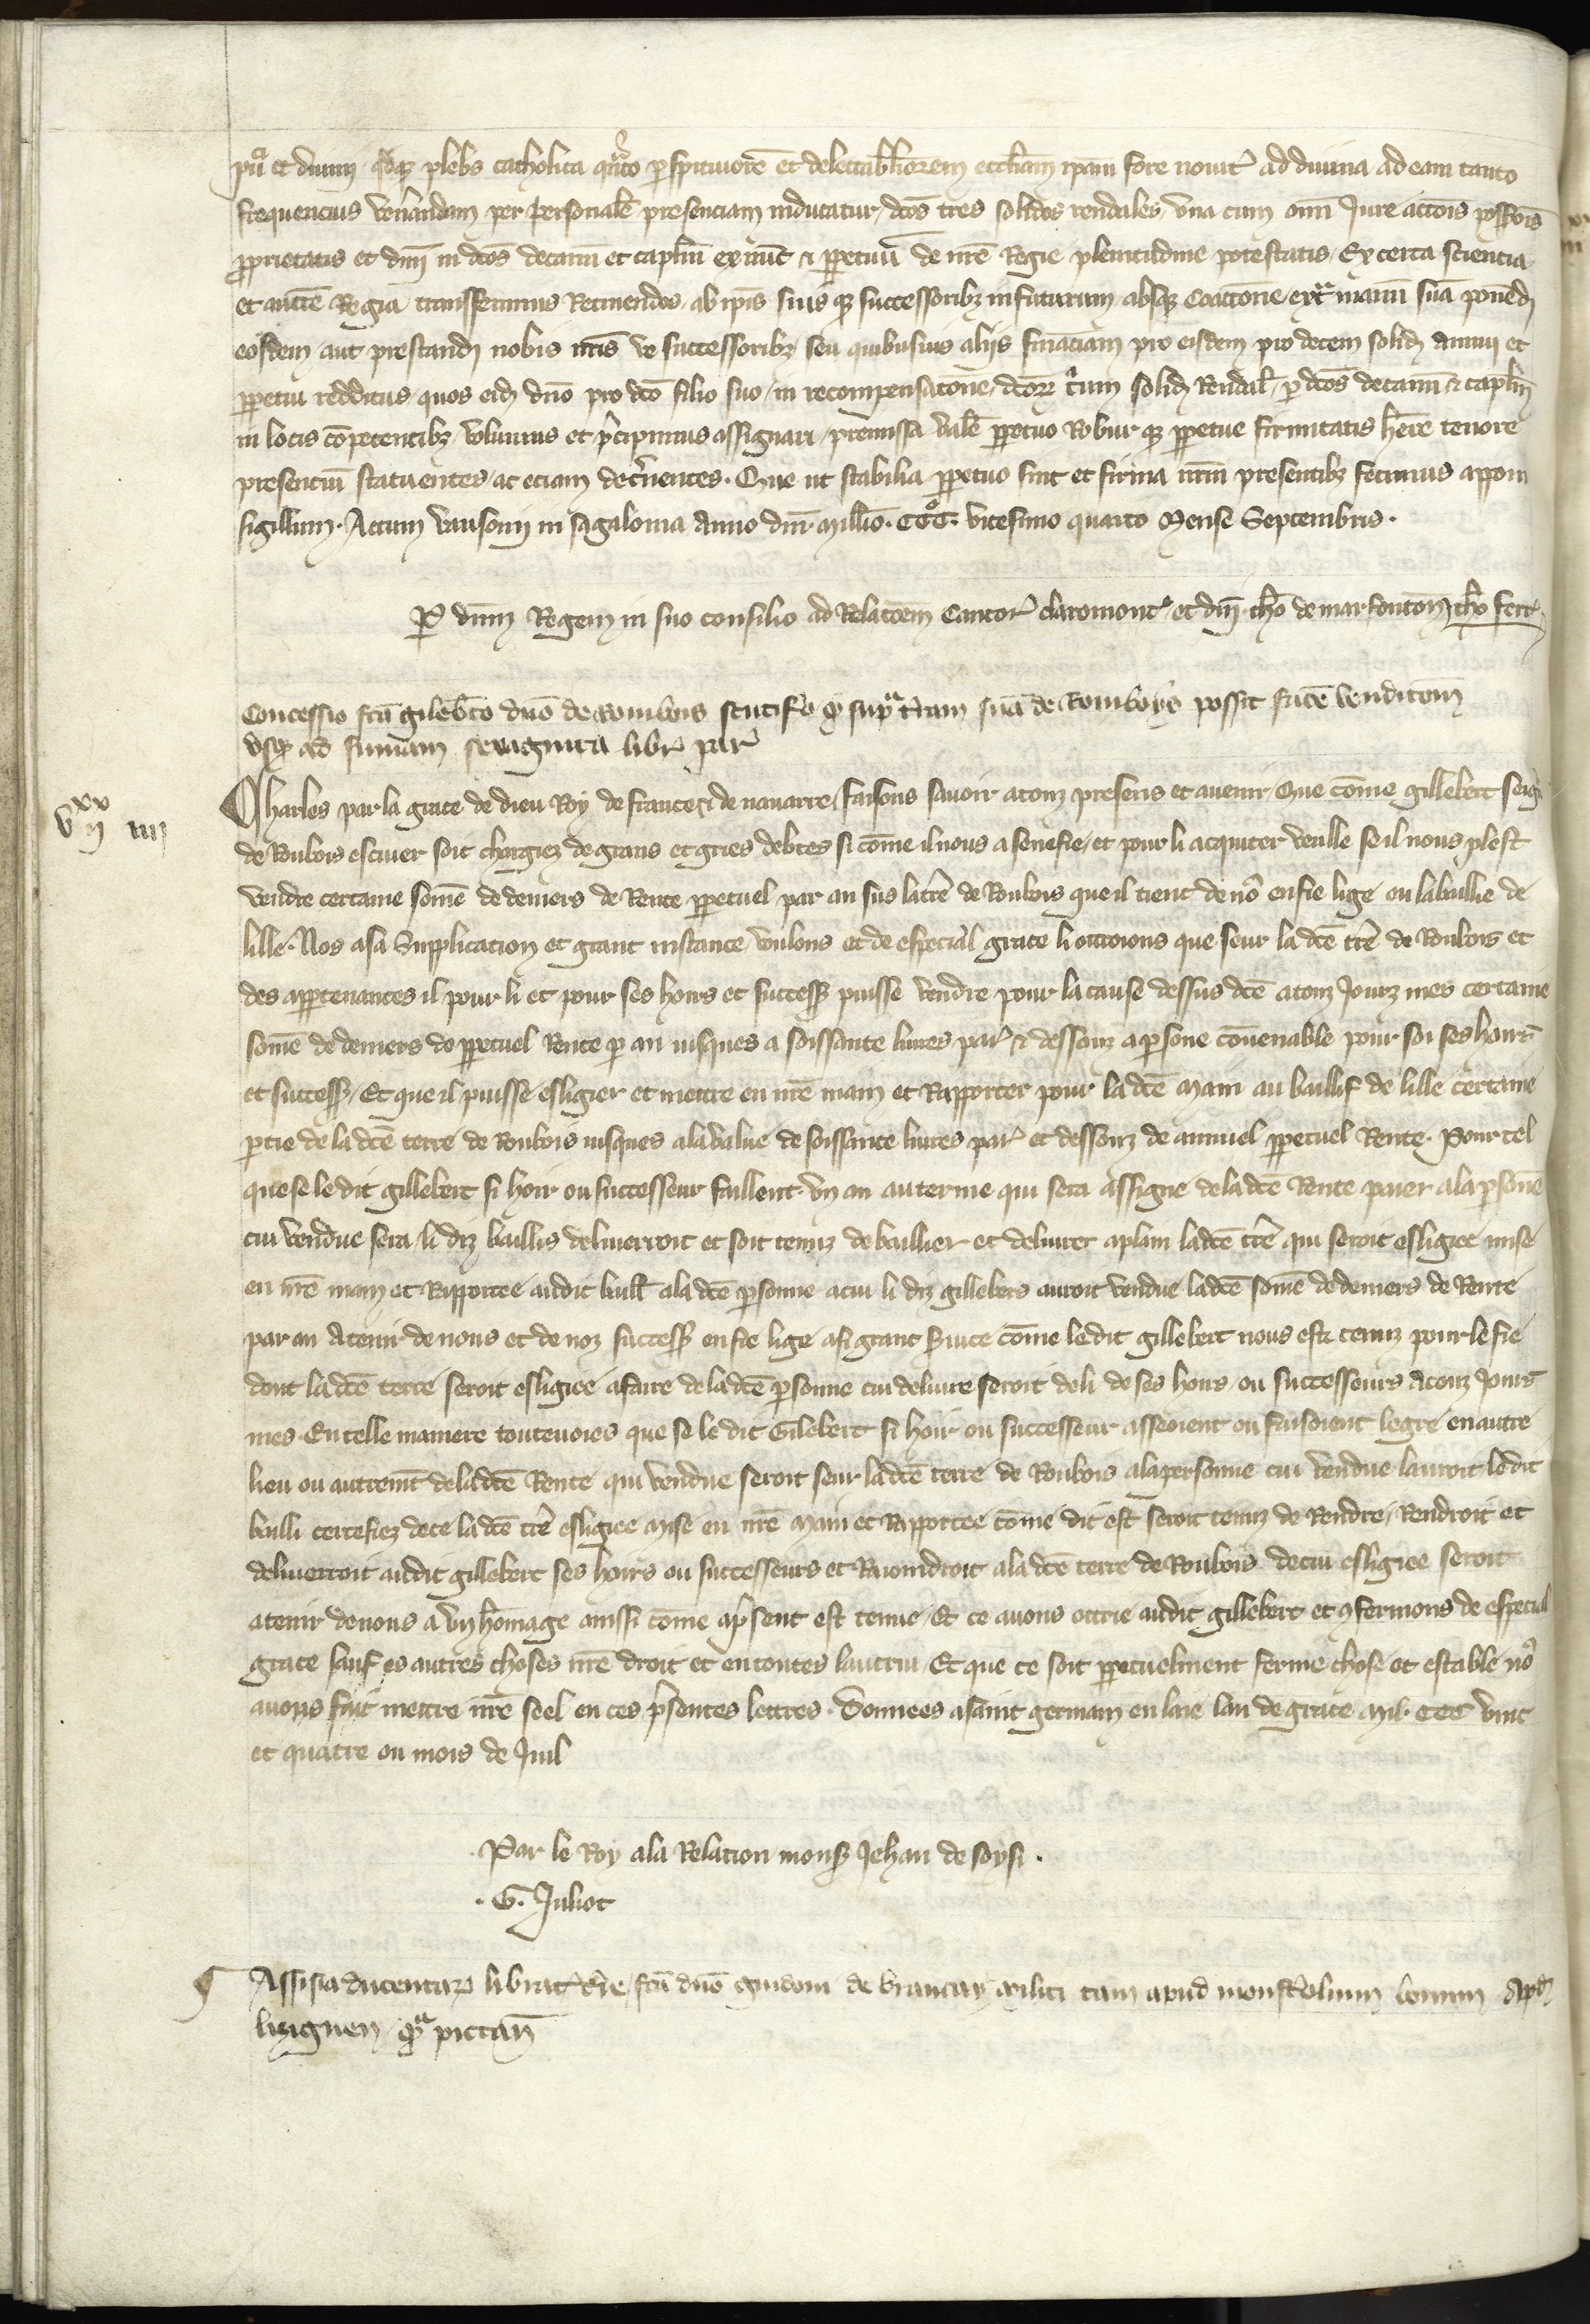 et divini plebs catholica qũto perspicuiorē et delectabiliorem eccliam ipam fore novit ad divina ad eam tanto
frequencius venerandam per personalē presenciam inducatur, dcos tres solidos rendales, una cum omi Jure actōis possessiōis
proprietatis et dnii in dcos decanū et caplm ex nūc & perpetuū de nrē Regie plenitudine potestatis, Ex certa sciencia
et auctē Regia transferimus Retinendos, ab ipis suis qz successoribz in futurum, absqz Coactione extra manū suā ponendi
eosdem aut prestandi nobis nris ve successoribz seu quibusuis aliis financiam pro eisdem pro decem solid annui et
perpetui redditus, quos eid dno pro dco filio suo, in recompensatone, dcorz trium solid Rendal, per dcos decanū & caplm
in locis cōpetentibz, volumus et precipimus assignari, premissa valē perpetuo Robur qz perpetue firmitatis herē tenore
presentiū statuentes, ac eciam decernentes. Que ut stabilia perpetuo sint et firma nrm presentibz fecimus apponi
sigillum. Actum vausonii in sagalonia anno dni millio. CCC. vicesimo quarto Mense Septembris.
Per dnm Regem in suo consilio ad Relacōem Cantor claromont et dni. tho de marfontoy, tho ferr
Concessio fcā gileberto dno de Roubois scutifo qz supra trām suā de Rombois possit facē venditōem
usqz ad sumam sexaginta libr par
v xx ii iiii
Charles par la grace de dieu Roy de france & de navarre, faisons savoir a touz presens et avenir, Que cōme gillebert seigr
de Roubois escuier soit chargiez de grans et gries debtes si cōme il nous a senefie, et pour li acquiter veulle se il nous plest
vendre certaine somē de deniers de Rente perpetuel par an sus la trē de Roubois que il tient de no9 en fie lige en la baillie de
lille. Nos a sa Supplication et grant instance voulons et de especial grace li ottroions que seur la dcē trē de Roubois et
des appartenances il pour li et pour ses hoirs et success puisse vendre pour la cause dessus dcē a touz Jourz mes certaine
somē de deniers de perpetuel Rente p an iusques a soissante livres par & dessouz a persone cōvenable pour soi ses hoirs
et success, Et que il puisse esligier et mettre en nrē main et Rapporter pour la dcē main au baillif de lille certaine
partie de la dcē terre de Roubois iusques a la value de soissante livres par et dessouz de annuel perpetuel Rente. Pour tel
que se le dit gillebert si hoir ou successeur faillent un an au terme qui sera assigne de la dcē Rente paier a la personē
cui vendue sera, li diz baillis deliverroit et soit tenuz de baillier et delivrer a plain la dcē trē qui seroit esligiee mise
en nrē main et Rapportee audit baill a la dcē persone a cui li diz gillebers auroit vendue la dcē somē de deniers de Rente
par an a tenir de nous et de noz success en fie lige a si grant service cōme le dit gillebert nous est tenuz pour le fie
dont la dcē terre seroit esligiee a faire de la dcē persone cui delivre seroit de li de ses hoirs ou successeurs a touz Jours
mes. En telle maniere toutevoies que se le dit Gilebert si hoir ou successeur asseoient ou faisoient le gre en autre
lieu ou autremt de la dcē Rente qui vendue seroit seur la dcē terre de Roubois a la personne cui vendue l auroit, le dit
bailli certefiez de ce la dcē trē esligiee mise en nrē main et Rapportee cōme dit est seroit tenuz de Rendre, Rendroit et
deliverroit audit gillebert ses hoirs ou successeurs et Raioindroit a la dcē terre de Roubois de cui esligiee seroit
a tenir de nous a un homage aussi cōme a present est tenue, Et ce avons ottrie audit gillebert et 9fermons de especial
grace sauf es autres choses nrē droit et en toutes l autrui, Et que ce soit perpetuelment ferme chose et estable no9
avons fait mettre nrē seel en ces presentes lettres. Donnees a saint germain en laie l an de grace mil. CCC vint
et quatre ou mois de Juil
Par le Roy a la Relation mons Jehan de soysi.
. G. Juliot
Assisia ducentarz librat tre, fcā dno guidoni de brancay militi tam apud monsterolium bonnin apd
lizignen qra pictan